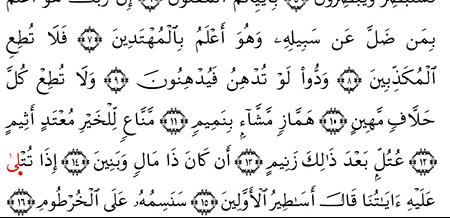 فَسَتُبْصِرُ وَيُبْصِرُونَ ﴿٥﴾ بِأَييِّكُمُ ٱلْمَفْتُونُ ﴿٦﴾ إِنَّ رَبَّكَ هُوَ أَعْلَمُ
بِمَن ضَلَّ عَن سَبِيلِهِۦ وَهُوَ أَعْلَمُ بِٱلْمُهْتَدِينَ ﴿٧﴾ فَلَا تُطِعِ
ٱلْمُكَذِّبِينَ ﴿٨﴾ وَدُّوا۟ لَوْ تُدْهِنُ فَيُدْهِنُونَ ﴿٩﴾ وَلَا تُطِعْ كُلَّ
حَلَّافٍ مَّهِينٍ ﴿١٠﴾ هَمَّازٍ مَّشَّآءٍۭ بِنَمِيمٍ ﴿١١﴾ مَّنَّاعٍ لِّلْخَيْرِ مُعْتَدٍ أَثِيمٍ
﴿١٢﴾ عُتُلٍّۭ بَعْدَ ذَٰلِكَ زَنِيمٍ ﴿١٣﴾ أَن كَانَ ذَا مَالٍ وَبَنِينَ ﴿١٤﴾ إِذَا تُتْلَىٰ
عَلَيْهِ ءَايَٰتُنَا قَالَ أَسَٰطِيرُ ٱلْأَوَّلِينَ ﴿١٥﴾ سَنَسِمُهُۥ عَلَى ٱلْخُرْطُومِ ﴿١٦﴾